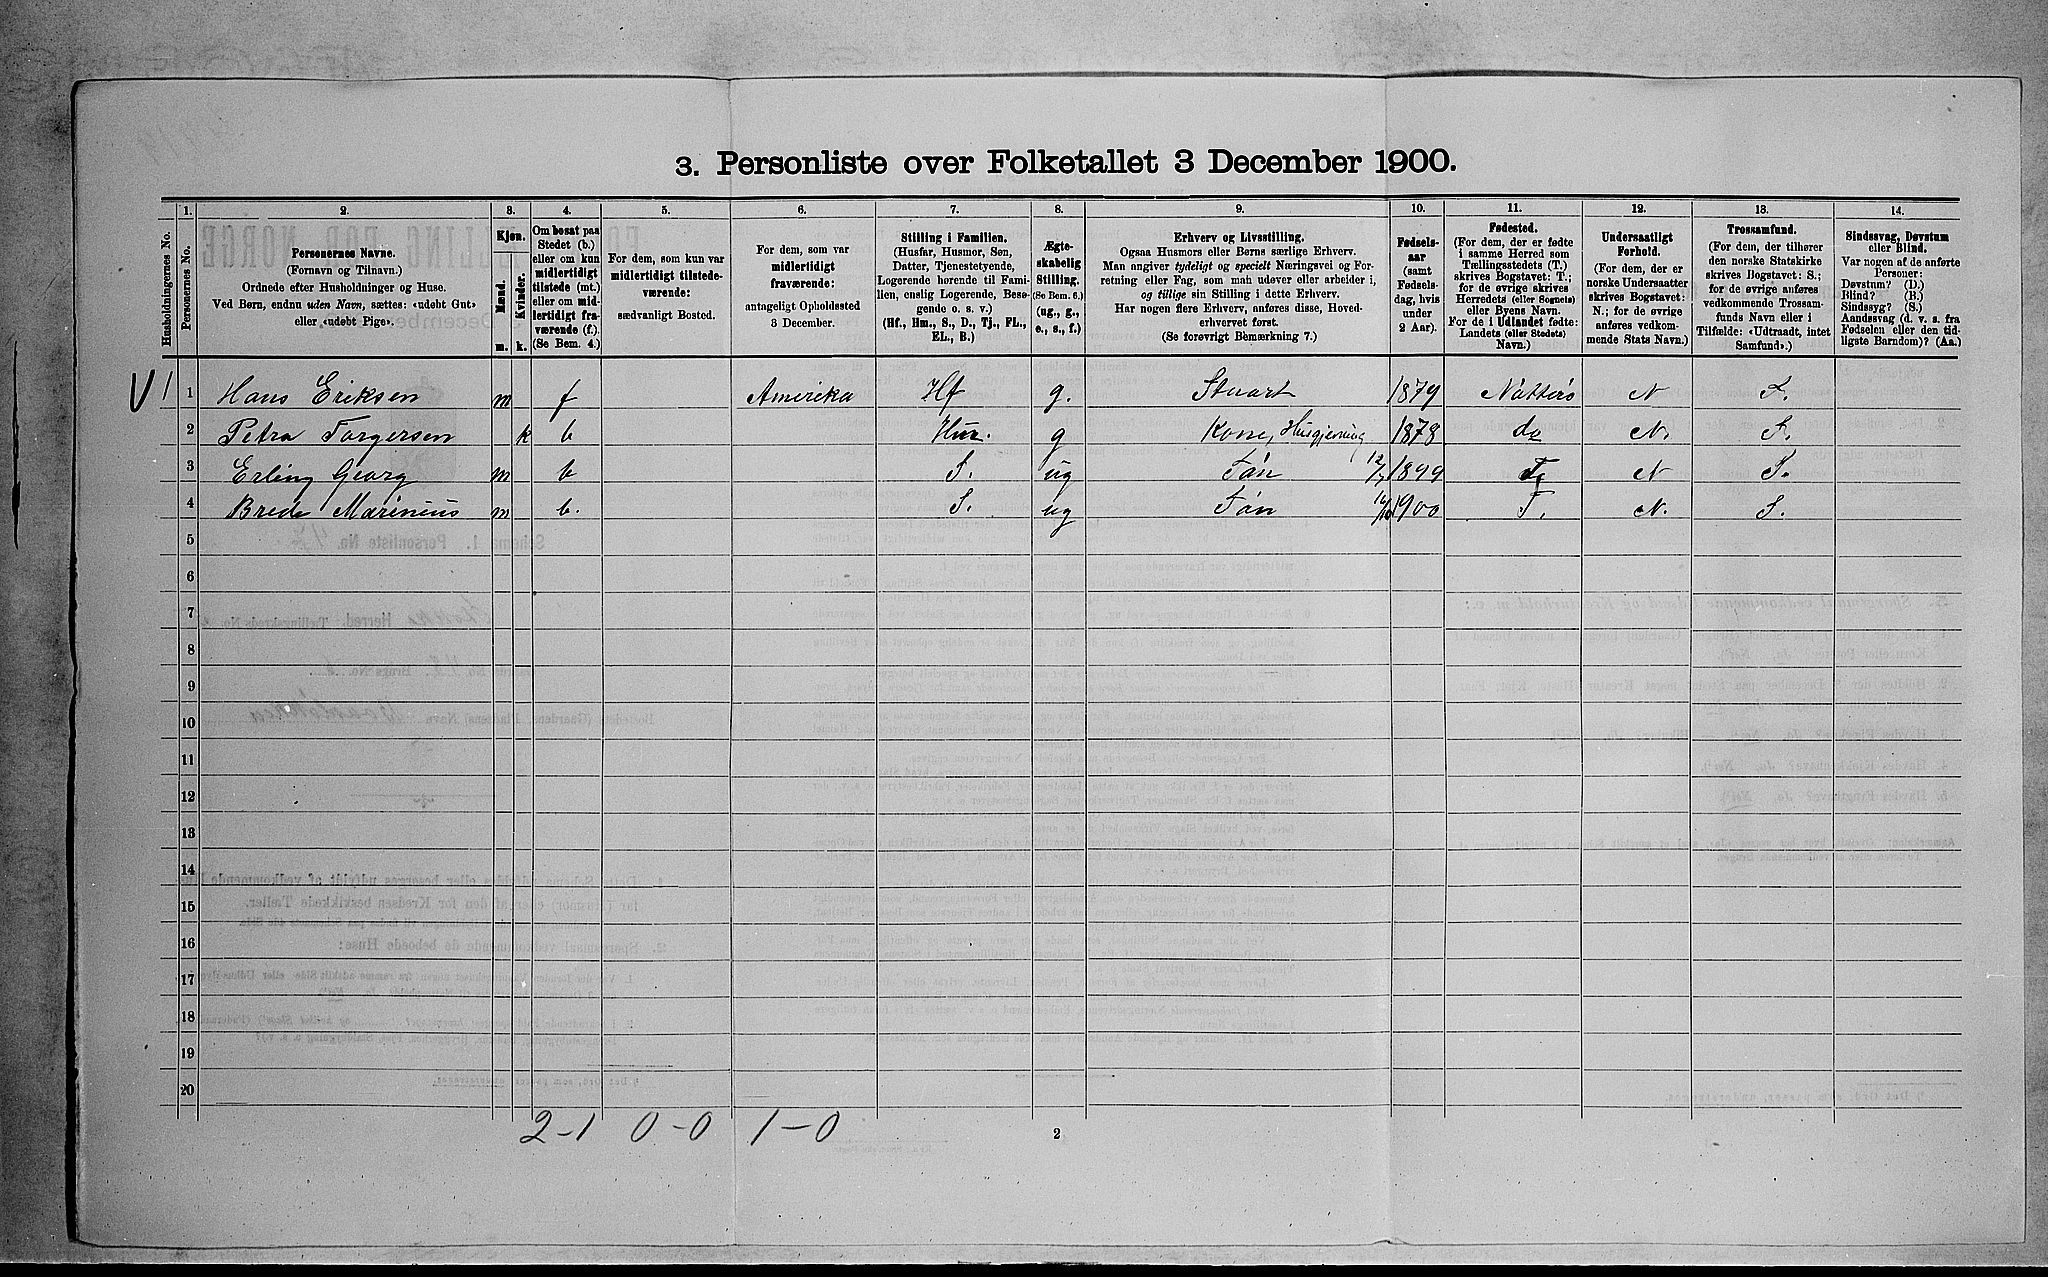 3. Personliste over Folketallet 3 December 1900.
1. 2. 3. 4. 5. 6. 7. 8. 9. 10. 11. 12. 13. 14.
Husholdningernes No.
Personernes No.
Personernes Navne.
(Fornavn og Tilnavn.)
Ordnede efter Husholdninger og Huse.
Ved Børn, endnu uden Navn, sættes: «udøbt Gut»
eller «udøbt Pige».
Kjøn.
Mænd.
Kvinder.
m. k.
Om bosat paa
Stedet (b.)
eller om kun
midlertidigt
tilstede (mt.)
eller om mid-
lertidigt fra-
værende (f.)
(Se Bem. 4.)
For dem, som kun var
midlertidigt tilstede-
værende:
sædvanligt Bosted.
For dem, som var
midlertidigt
fraværende:
antageligt Opholdssted
3 December.
Stilling i Familien.
(Husfar, Husmor, Søn,
Datter, Tjenestetyende,
Logerende hørende til Fami-
lien, enslig Logerende, Besø-
gende o. s. v.)
(Hf., Hm., S., D., Tj., FL.,
EL., B.)
Ægte-
skabelig
Stilling.
(Se Bem. 6.)
(ug., g.,
e., s., f.)
Erhverv og Livsstilling.
Ogsaa Husmors eller Børns særlige Erhverv.
Man angiver tydeligt og specielt Næringsvei og For-
retning eller Fag, som man udøver eller arbeider i,
og tillige sin Stilling i dette Erhverv.
Har nogen flere Erhverv, anføres disse, Hoved-
erhvervet først.
(Se forøvrigt Bemærkning 7.)
Fødsels-
aar
(samt
Fødsels-
dag, hvis
under
2 Aar).
Fødested.
(For dem, der er fødte
i samme Herred som
Tællingsstedets (T.)
skrives Bogstavet: T.;
for de øvrige skrives
Herredets (eller Sognets)
eller Byens Navn.
For de i Udlandet fødte:
Landets (eller Stedets)
Navn.)
Undersaatligt
Forhold.
(For dem, der er
norske Undersaatter
skrives Bogstavet:
N.; for de øvrige
anføres vedkom-
mende Stats Navn.)
Trossamfund.
(For dem, der tilhører
den norske Statskirke
skrives Bogstavet: S.;
for de øvrige anføres
vedkommende Trossam-
funds Navn eller i
Tilfælde: «Udtraadt, intet
Samfund».)
Sindssvag, Døvstum
eller Blind.
Var nogen af de anførte
Personer:
Døvstum? (D.)
Blind? (B.)
Sindssyg? (S.)
Aandssvag (d. v. s. fra
Fødselen eller den tid-
ligste Barndom)? (Aa.)
V 1 1 Hans Eriksen m f Amerika Hf g. Stuart 1879 Nøtterø N S.
2 Petra Torgersen k b Hus. g Kone, Husgjerning 1878 do N. S.
3 Erling Georg m b S. ug Søn 12/7 1899 T. N S.
4 Brede Marinius m b. S. ug Søn 1900 T. N. S.
5
6
7
8
9
10
11
12
13
14
15
16
17
18
19
20
2-1 0-0 1-0
2